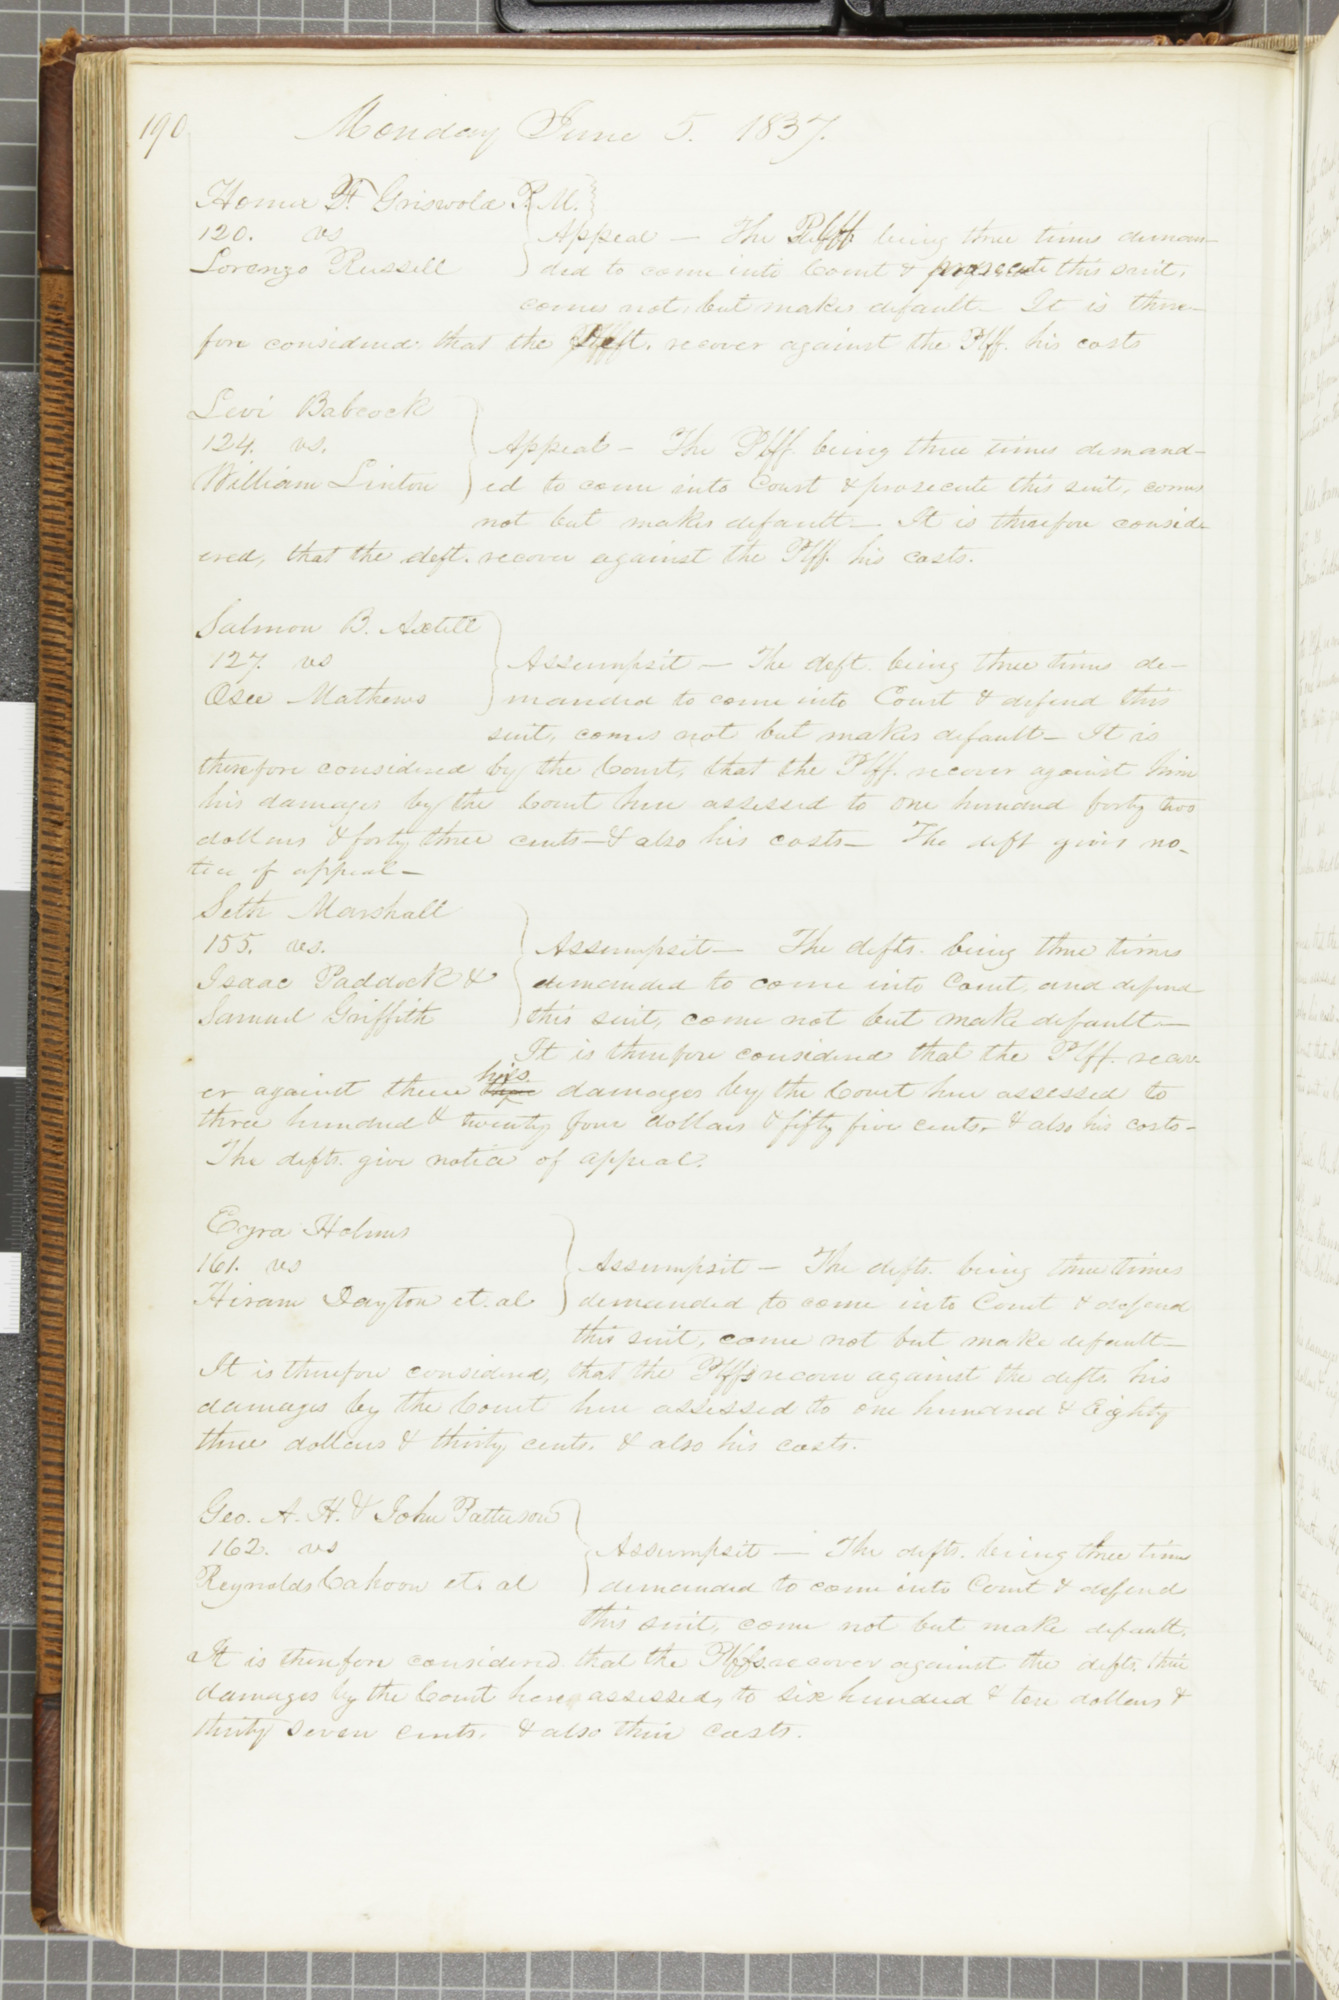 190
Monday June 5. 1837.
Homer H. Griswold P. M.
120. vs
Lorenzo Russell
Appeal — The Plff. being three times deman-
ded to come into Court & prosecute this suit,
comes not, but makes default — It is there-
fore considered that the Deft. recover against the Plff. his costs
Levi Babcock
124. vs.
William Linton
Appeal — The Plff. being three times demand-
ed to come into Court & prosecute this suit, comes
not but makes default —. It is therefore consid-
ered, that the deft. recover against the Plff. his costs.
Salmon B. Axtell
127. vs
Osee Mathews
Assumpsit — The deft. being three times de-
manded to come into Court & defend this
suit, comes not but makes default — It is
therefore considered by the Court, that the Plff. recover against him
his damages by the Court here assessed to one hundred forty two
dollars & forty three cents — & also his costs — The deft gives no-
tice of appeal —
Seth Marshall
155. vs.
Isaac Paddock &
Samuel Griffith
Assumpsit — The defts. being three times
demanded to come into Court, and defend
this suit, come not but make default —
It is therefore considered that the Plff. recov-
er against them his damages by the Court here assessed to
three hundred & twenty four dollars & fifty five cents, & also his costs —
The defts. give notice of appeal.
Ezra Holmes
161. vs
Hiram Dayton et. al
Assumpsit — The defts. being three times
demanded to come into Court & defend
this suit, come not but make default —
It is therefore considered, that the Plffs recover against the defts. his
damages by the Court here assessed to one hundred & Eighty
three dollars & thirty cents. & also his costs.
Geo. A. H. & John Patterson
162. vs
Reynolds Cahoon et. al
Assumpsit — The defts. being three times
demanded to come into Court & defend
this suit, come not but make default.
It is therefore considered that the Plffs. recover against the defts. their
damages by the Court here assessed, to six hundred & ten dollars &
thirty seven cents. & also their costs.